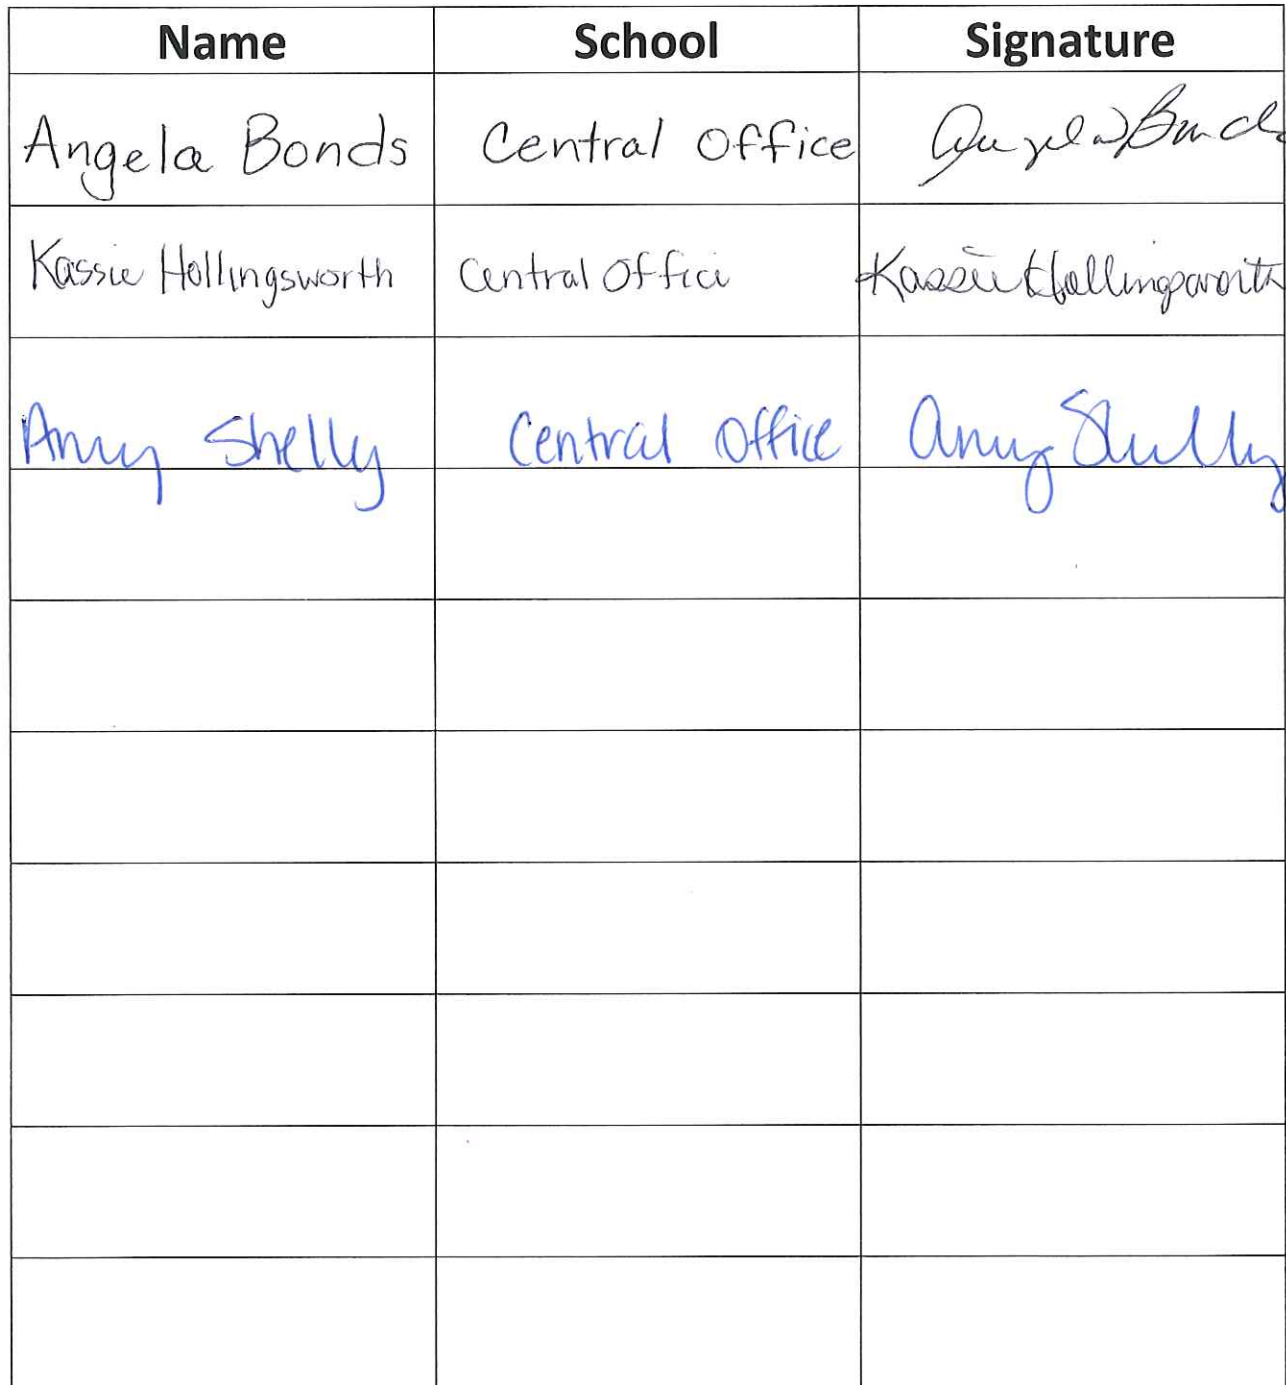 Name School Signature
Angela Bonds Central Office Angela Bonds
Kassie Hollingsworth Central Office Kassie Hollingsworth
Amy Shelly Central Office Amy Shelly